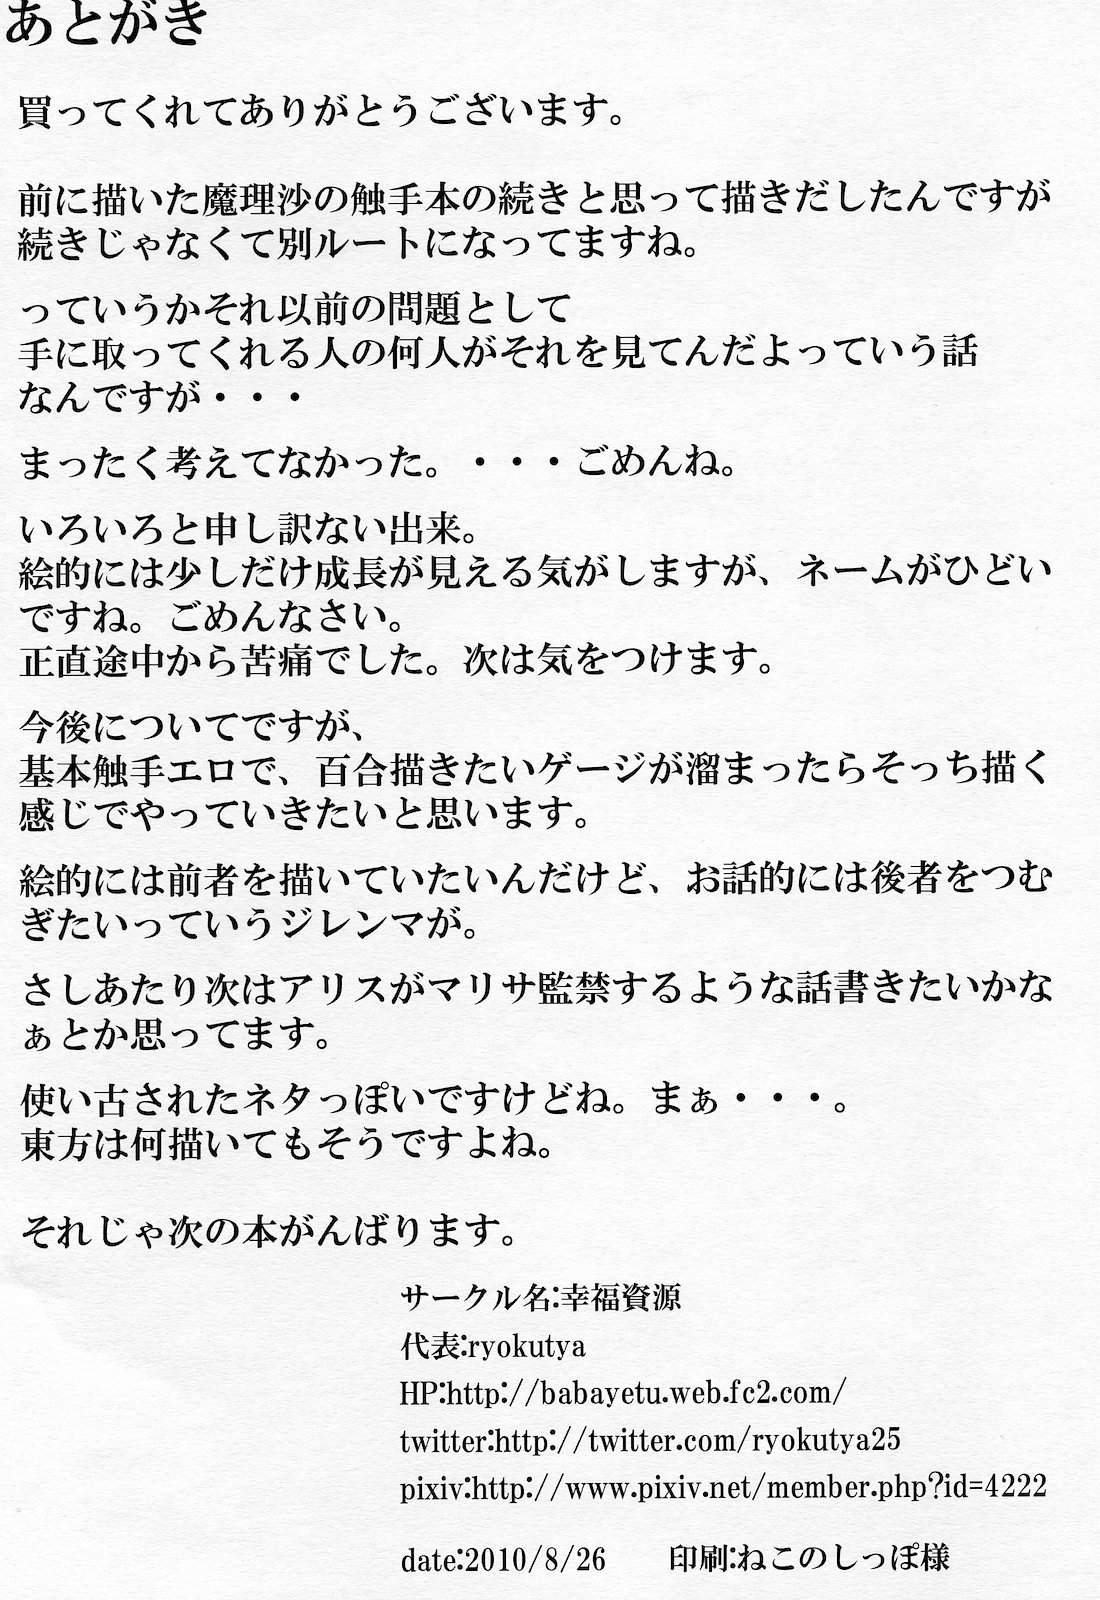 あとがき
買ってくれてありがとうございます。
前に描いた魔理沙の触手本の続きと思って描きだしたんですが
続きじゃなくて別ルートになってますね。
っていうかそれ以前の問題として
手に取ってくれる人の何人がそれを見てんだよっていう話
なんですが・・・
まったく考えてなかった。・・・ごめんね。
いろいろと申し訳ない出来。
絵的には少しだけ成長が見える気がしますが、ネームがひどい
ですね。ごめんなさい。
正直途中から苦痛でした。次は気をつけます。
今後についてですが、
基本触手エロで、百合描きたいゲージが溜まったらそっち描く
感じでやっていきたいと思います。
絵的には前者を描いていたいんだけど、お話的には後者をつむ
ぎたいっていうジレンマが。
さしあたり次はアリスがマリサ監禁するような話書きたいかな
ぁとか思ってます。
使い古されたネタっぽいですけどね。まぁ・・・。
東方は何描いてもそうですよね。
それじゃ次の本がんばります。
サークル名:幸福資源
代表:ryokutya
HP:http://babayetu.web.fc2.com/
twitter:http://twitter.com/ryokutya25
pixiv:http://www.pixiv.net/member.php?id=4222
date:2010/8/26　　印刷:ねこのしっぽ様